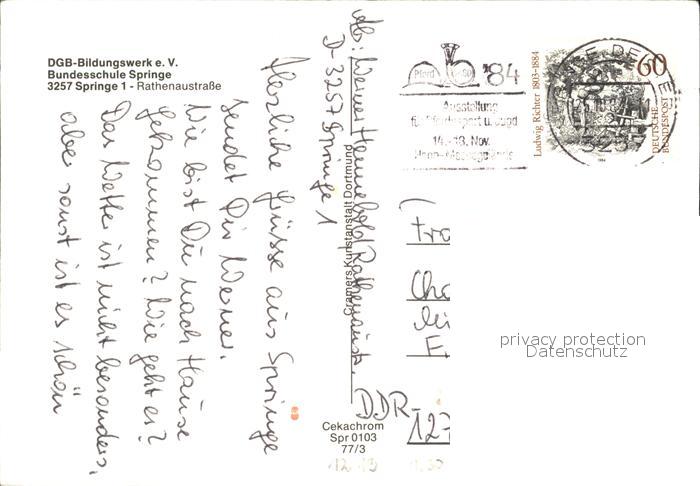 DGB-Bildungswerk e. V.
Bundesschule Springe
3257 Springe 1 - Rathenaustraße
Herzliche Grüsse aus Springe
sendet Dir Werner.
Wie bist Du nach Hause
gekommen? Wie geht es?
Das Wetter ist nicht besonders,
aber sonst ist es schön
Abs: Werner Rathenaustr.
D-3257 Springe 1
Cramers Kunstanstalt Dortmund
Cekachrom
Spr 0103
77/3
Pferd '84
Ausstellung
für Pferdesport u. Jagd
14.-18. Nov.
Ludwig Richter 1803-1884
60
DEUTSCHE
BUNDESPOST
Fro
DDR-
127
privacy protection
Datenschutz
12.49